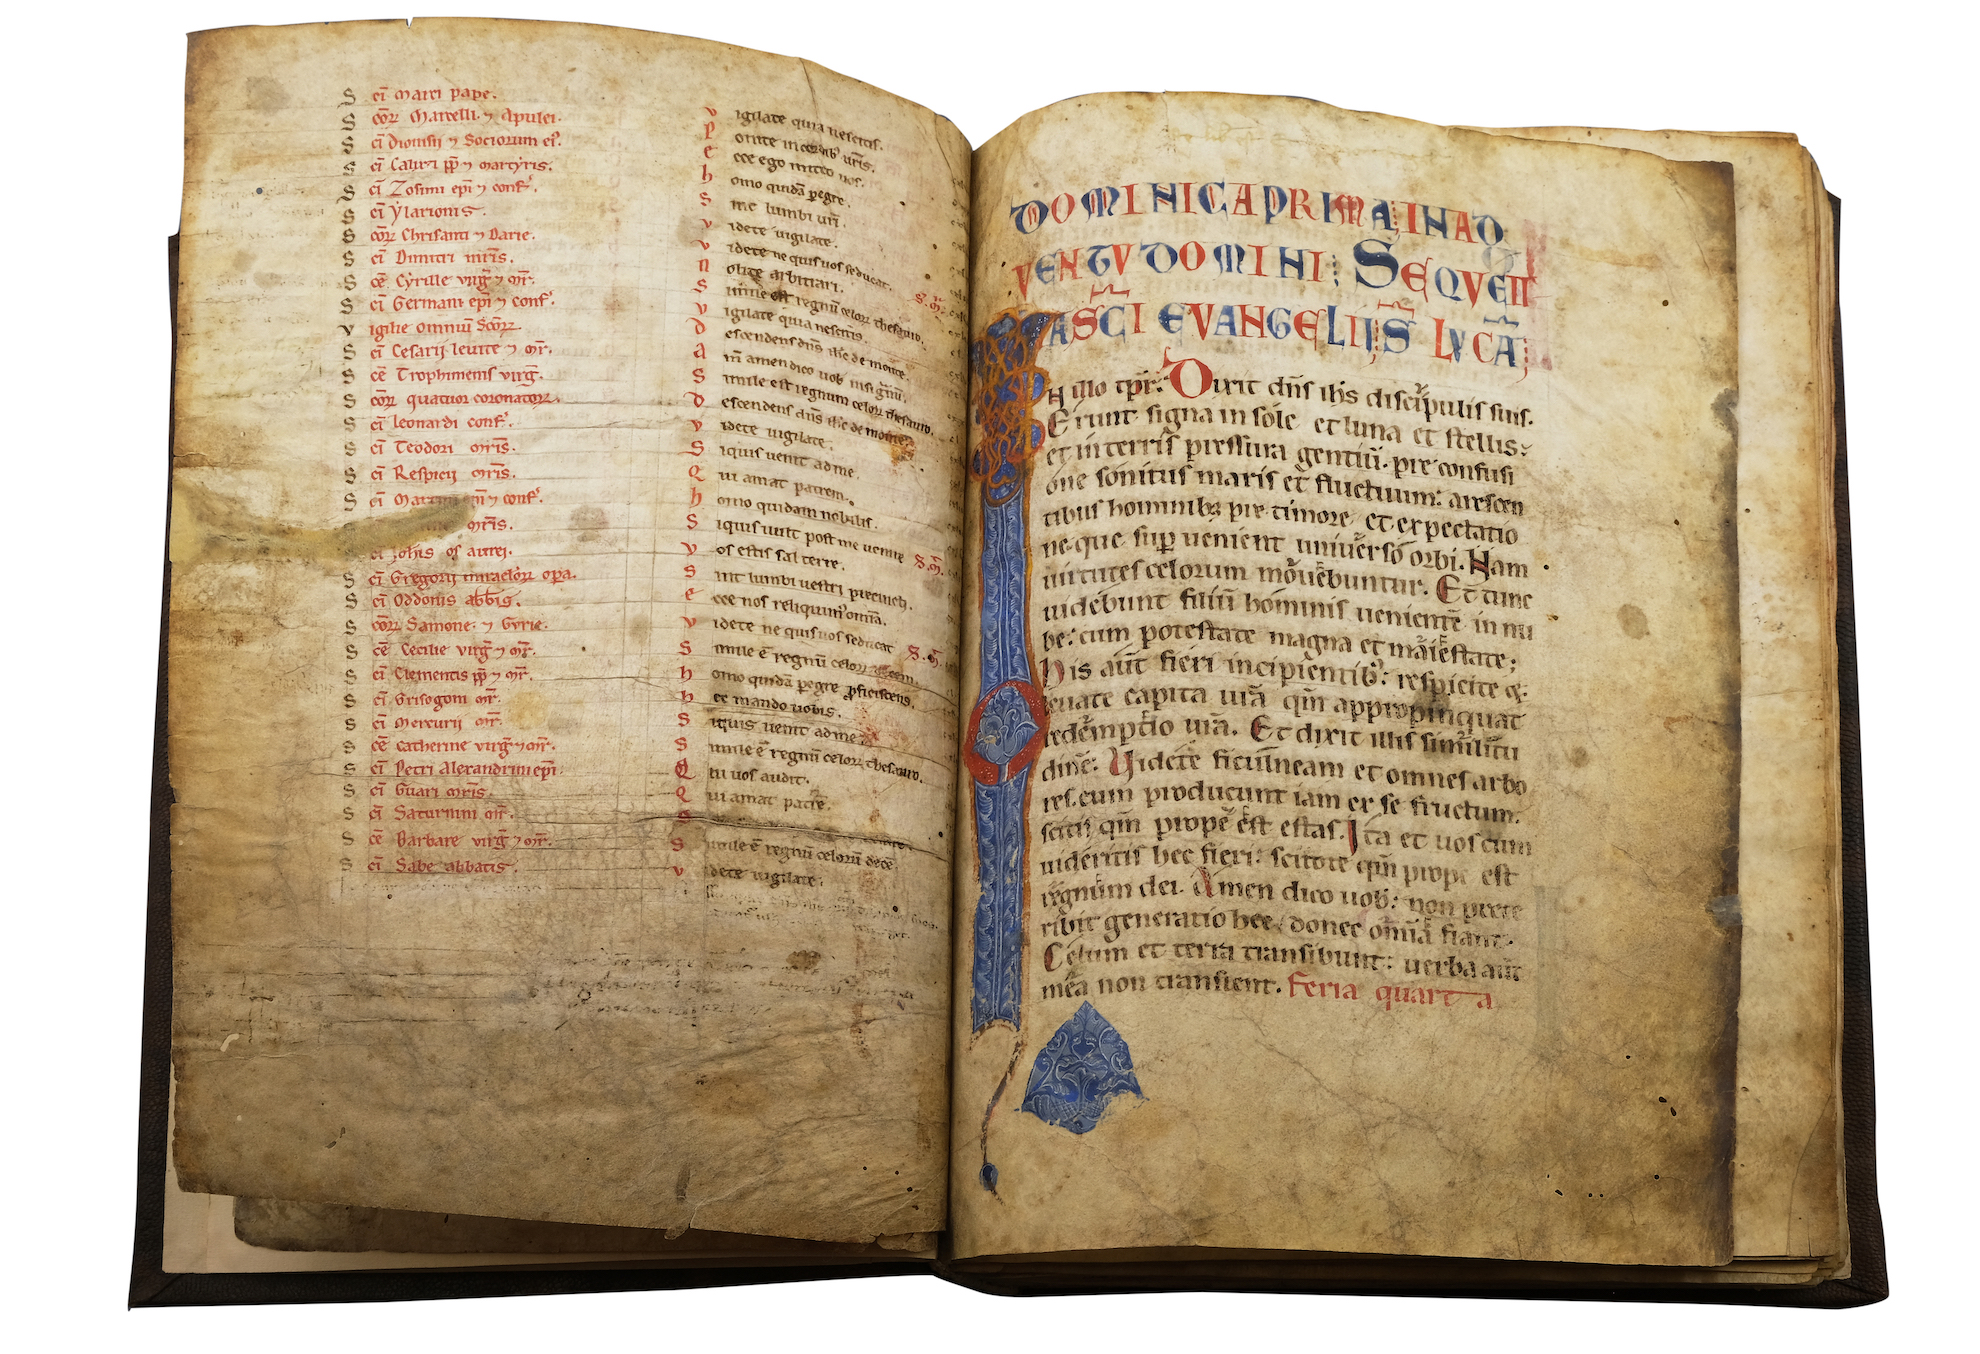 S cī Marci pape.
S cōꝝ Marcelli ⁊ Apulei.
S cī Dionisii ⁊ Sociorum eiꝰ.
S cī Calixti p̄p ⁊ martyris.
S cī Zosimi ep̄i ⁊ conf̄.
S cī Ylarionis.
S cōꝝ Chrisanti ⁊ Darie.
S cī Dimitri mr̄is.
S cē Cyrille virḡ ⁊ mr̄.
S cī Germani ep̄i ⁊ conf̄.
V igilie Omniū Scōꝝ.
S cī Cesarii leuite ⁊ mr̄.
S cē Trophimenis virḡ.
S cōꝝ quatuor coronatoꝝ.
S cī leonardi conf̄.
S cī Teodori mr̄is.
S cī Respicii mr̄is.
S cī ⁊ conf̄.
mr̄is.
cī Joh̄is os aurei.
S cī Gregorii miraclōꝝ opa.
S cī Oddonis abb̄is.
S cōꝝ Samone ⁊ Gyrie.
S cē Cecilie virḡ ⁊ mr̄.
S cī Clementis p̄p ⁊ mr̄.
S cī Grisogoni mr̄.
S cī Mercurii mr̄.
S cē Catherine virḡ ⁊ mr̄.
S cī Petri Alexandrini ep̄i.
S cī Guari mr̄is.
S cī Saturnini mr̄.
S cē Barbare virḡ ⁊ mr̄.
S cī Sabe abbatis.
v igilate quia nescitis.
p onite in cordib' ur̄is.
e cce ego mitto uos.
h omo quidā ꝑegre.
S int lumbi ur̄i.
v idete uigilate.
v idete ne quis uos seducat.
n olite arbitrari.
S imile est regnū celoꝝ thesauro.
v igilate quia nescitis.
d escendens dn̄s ih̄c de monte.
a m̄ amen dico uob nisi grānū.
S imile est regnum celoꝝ thesauro.
d escendens dn̄s ih̄c de monte.
v idete uigilate.
S iquis uenit ad me.
Q ui amat patrem.
h omo quidam nobilis.
S iquis uult post me uenire S.M̄.
v os estis sal terre.
S int lumbi uestri precincti.
e cce nos reliquim' omīa.
v idete ne quis uos seducat S.M̄.
S imile ē regnū celoꝝ
h omo quidā ꝑegre ꝓficiscens.
h ec mando uobis.
S iquis uenit ad me
S imile ē regnū celoꝝ thesauro.
Q ui uos audit.
Q ui amat patrē.
S imile ē regnū celorū decē
v idete uigilate.
DOMINICA PRIMA IN AD
VENTV DOMINI: SEQVEN
TIA SC̄I EVANGELII S̄ LVCĀ
IN illo tpr̄: Dixit dn̄s ih̄s discipulis suis.
Erunt signa in sole et luna et stellis:
et in terris pressura gentiū. pre confusi
one sonitus maris et fluctuum: arescen
tibus hominibꝫ pre timore et expectatio
ne que suꝑuenient uniuerso orbi. Nam
uirtutes celorum mouebuntur. Et tunc
uidebunt filiū hominis uenientē in nu
be: cum potestate magna et maiestate;
His aūt fieri incipientib': respicite ⁊
leuate capita urā qm̄ appropinquat
redemptio urā. Et dixit illis similitu
dinē: Videte ficulneam et omnes arbo
res. cum producunt iam ex se fructum:
scitis qm̄ prope est estas. Ita et uos cum
uideritis hec fieri: scitote qm̄ prope est
regnum dei. Amen dico uob: non prete
ribit generatio hec, donec omīa fiant.
Celum et terra transibunt: uerba aūt
mea non transient. Feria quarta